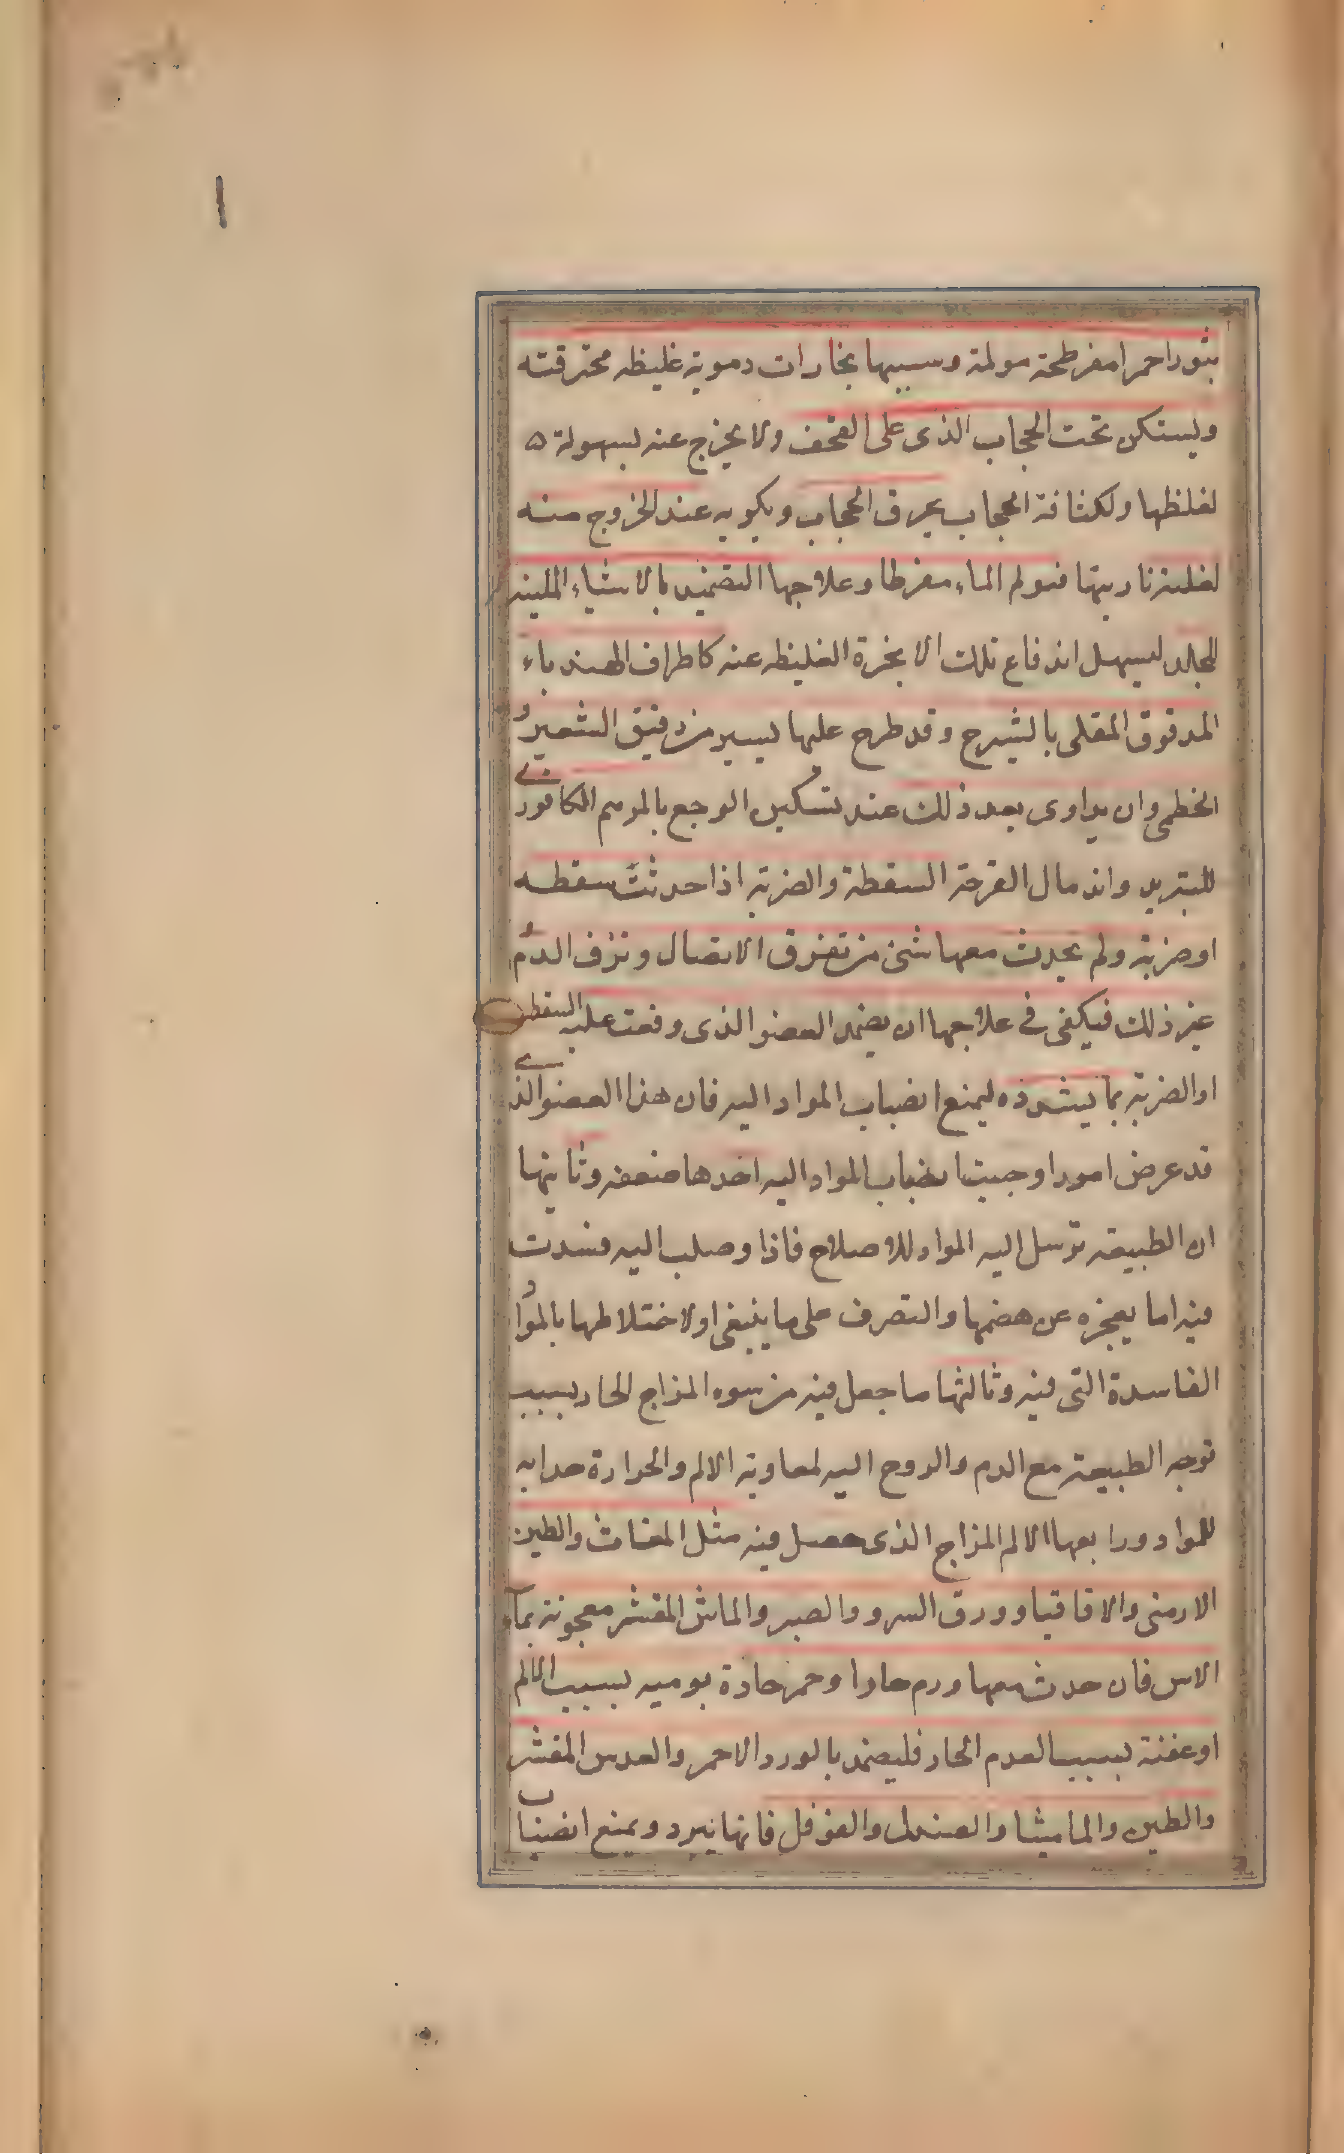 بثورا حمرا مفرطحة مولمة وسببها بخارات دموية غليظه محترقته
ويستكن تحت الحجاب الذى على القحف ولا يخرج عنه بسهولة ٥
لغلظها ولكثافة الحجاب يحرق الحجاب ويكويه عند الخروج منه
لغلبة ناريتها فيولم الماء مفرطا وعلاجها التضميد بالاشياء الملينه
للجلد ليسهل اندفاع تلك الابخرة الغليظه عنه كاطراف الهندباء
المدقوق المقلى بالشيرج وقد طرح عليها يسير من دقيق الشعير و
الخطمى وان يداوى بعد ذلك عند تسكين الوجع بالمرهم الكافورى
للتبريد واندمال القرحة السقطة والضربة اذا حدثت سقطه
او ضربة ولم يحدث معها شئ من تفرق الاتصال ونزف الدم و
غير ذلك فيكفى فى علاجها ان يضمد العضو الذى وقعت عليه السقطه
او الضربة بما يشده ليمنع انصباب المواد اليه فان هذا العضو الذى
قد عرض امور اوجبت انصباب المواد اليه احدها ضعفه وثانيها
ان الطبيعة ترسل اليه المواد للاصلاح فاذا وصلب اليه فسدت
فيه اما يعجزه عن هضمها والتصرف على ما ينبغى اولاختلاطها بالمواد
الفاسدة التى فيه وثالثها ما جعل فيه من سوء المزاج الحار بسبب
توجه الطبيعة مع الدم والروح اليه لمعاوية الالم والحرارة جدابه
للمواد ورابعها الالم المزاج الذى حصل فيه مثل المغاث والطين
الارمنى والاقاقيا وورق السرو والصبر والماش المقشر معجونة بماء
الاس فان حدث معها ورم حاوا وحمر حادة يوميه بسبب الالم
او عفنة بسبب العدم الحار فليضمد بالورد الاحمر والعدس المقشر
والطين والماميثا والصندل والفوفل فانها يبرد ويمنع انصباب